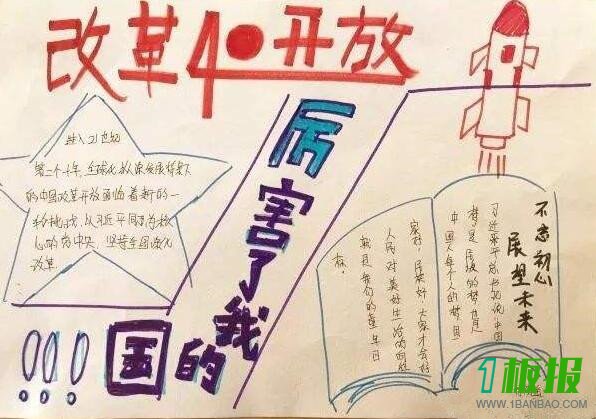 改革40开放
进入21世纪
第二个十年,全球化纵深发展背景下
的中国改革开放面临着新的一
轮挑战,以习近平同志为核
心的党中央,坚持全面深化
改革
厉害了我的国!!!
不忘初心
展望未来
习近平总书记说中国
梦是民族的梦也是
中国人每个人的梦国
家好 民族好 大家才会好
人民对美好生活的向往
就是我们的
标.
1板报
WWW.1BANBAO.COM